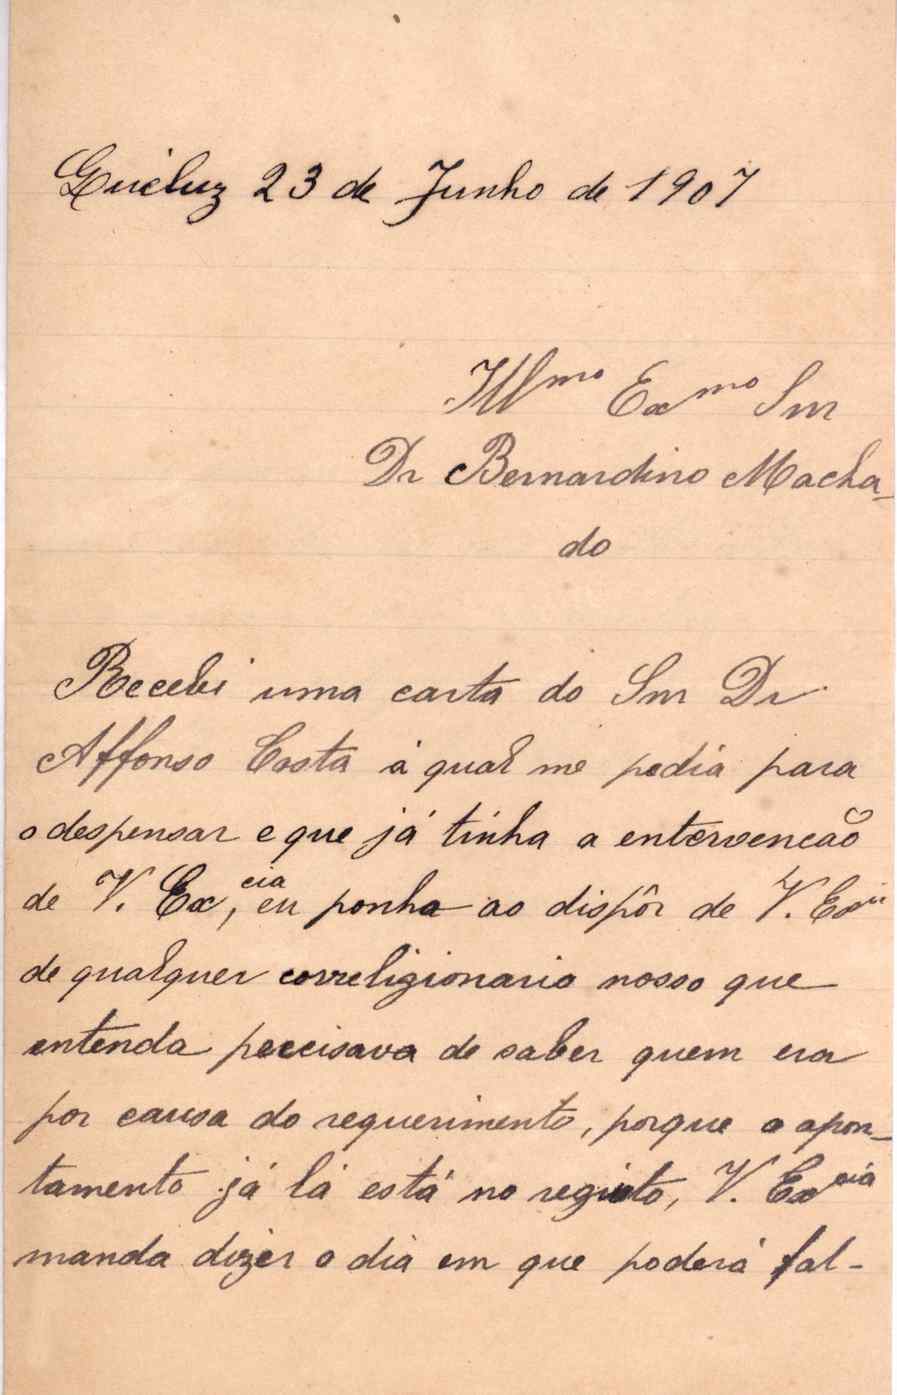 Queluz 23 de Junho de 1907
Illmo Exmo Snr
Dr Bernardino Macha-
do
Recebi uma carta do Snr Dr
Affonso Costa á qual me pedia para
o despensar e que já tinha a entervencão
de V. Excia, eu ponha ao dispôr de V. Excia
de qualquer correligionario nosso que
entenda percisava de saber quem era
por causa do requerimento, porque o apon-
tamento já lá está no registo, V. Excia
manda dizer o dia em que poderá fal-